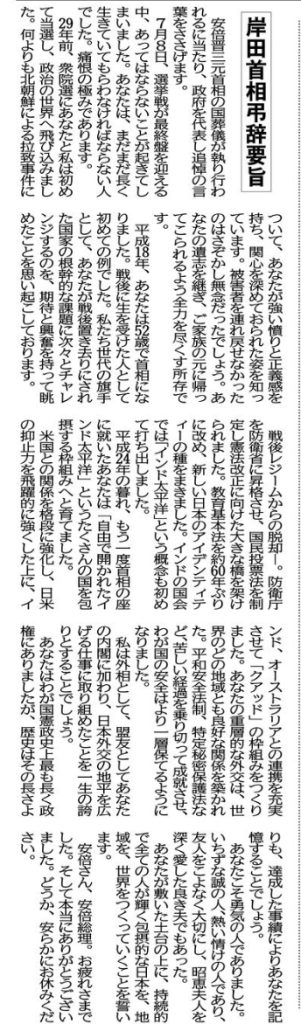 岸田首相弔辞要旨
安倍晋三元首相の国葬儀が執り行わ
れるに当たり、政府を代表し追悼の言
葉をささげます。
7月8日、選挙戦が最終盤を迎える
中、あってはならないことが起きてし
まいました。あなたは、まだまだ長く
生きていてもらわなければならない人
でした。痛恨の極みであります。
29年前、衆院選にあなたと私は初め
て当選し、政治の世界へ飛び込みまし
た。何よりも北朝鮮による拉致事件に
ついて、あなたが強い憤りと正義感を
持ち、関心を深めておられた姿を知っ
ています。被害者を連れ戻せなかった
のはさぞかし無念だったでしょう。あ
なたの遺志を継ぎ、ご家族の元に帰っ
てこられるよう全力を尽くす所存で
す。
平成18年、あなたは52歳で首相にな
りました。戦後に生を受けた人として
初めての例でした。私たち世代の旗手
として、あなたが戦後置き去りにされ
た国家の根幹的な課題に次々とチャレ
ンジするのを、期待と興奮を持って眺
めたことを思い起こしております。
戦後レジームからの脱却―。防衛庁
を防衛省に昇格させ、国民投票法を制
定し憲法改正に向けた大きな橋を架け
られました。教育基本法を約60年ぶり
に改め、新しい日本のアイデンティテ
ィーの種をまきました。インドの国会
では「インド太平洋」という概念も初め
て打ち出しました。
平成24年の暮れ、もう一度首相の座
に就いたあなたは「自由で開かれたイ
ンド太平洋」というたくさんの国を包
摂する枠組みへと育てました。
米国との関係を格段に強化し、日米
の抑止力を飛躍的に強くした上に、イ
ンド、オーストラリアとの連携を充実
させて「クアッド」の枠組みをつくり
ました。あなたの重層的な外交は、世
界のどの地域とも良好な関係を築かれ
た。平和安全法制、特定秘密保護法な
ど、苦しい経過を乗り切って成就させ、
わが国の安全はより一層保てるように
なりました。
私は外相として、盟友としてあなた
の内閣に加わり、日本外交の地平を広
げる仕事に取り組めたことを一生の誇
りとすることでしょう。
あなたはわが国憲政史上最も長く政
権にありましたが、歴史はその長さよ
りも、達成した事績によりあなたを記
憶することでしょう。
あなたこそ勇気の人でありました。
いちずな誠の人、熱い情けの人であり、
友人をこよなく大切にし、昭恵夫人を
深く愛した良き夫でもあった。
あなたが敷いた土台の上に、持続的
で全ての人が輝く包摂的な日本を、地
域を、世界をつくっていくことを誓い
ます。
安倍さん、安倍総理。お疲れさまで
した。そして本当にありがとうござい
ました。どうか、安らかにお休みくだ
さい。